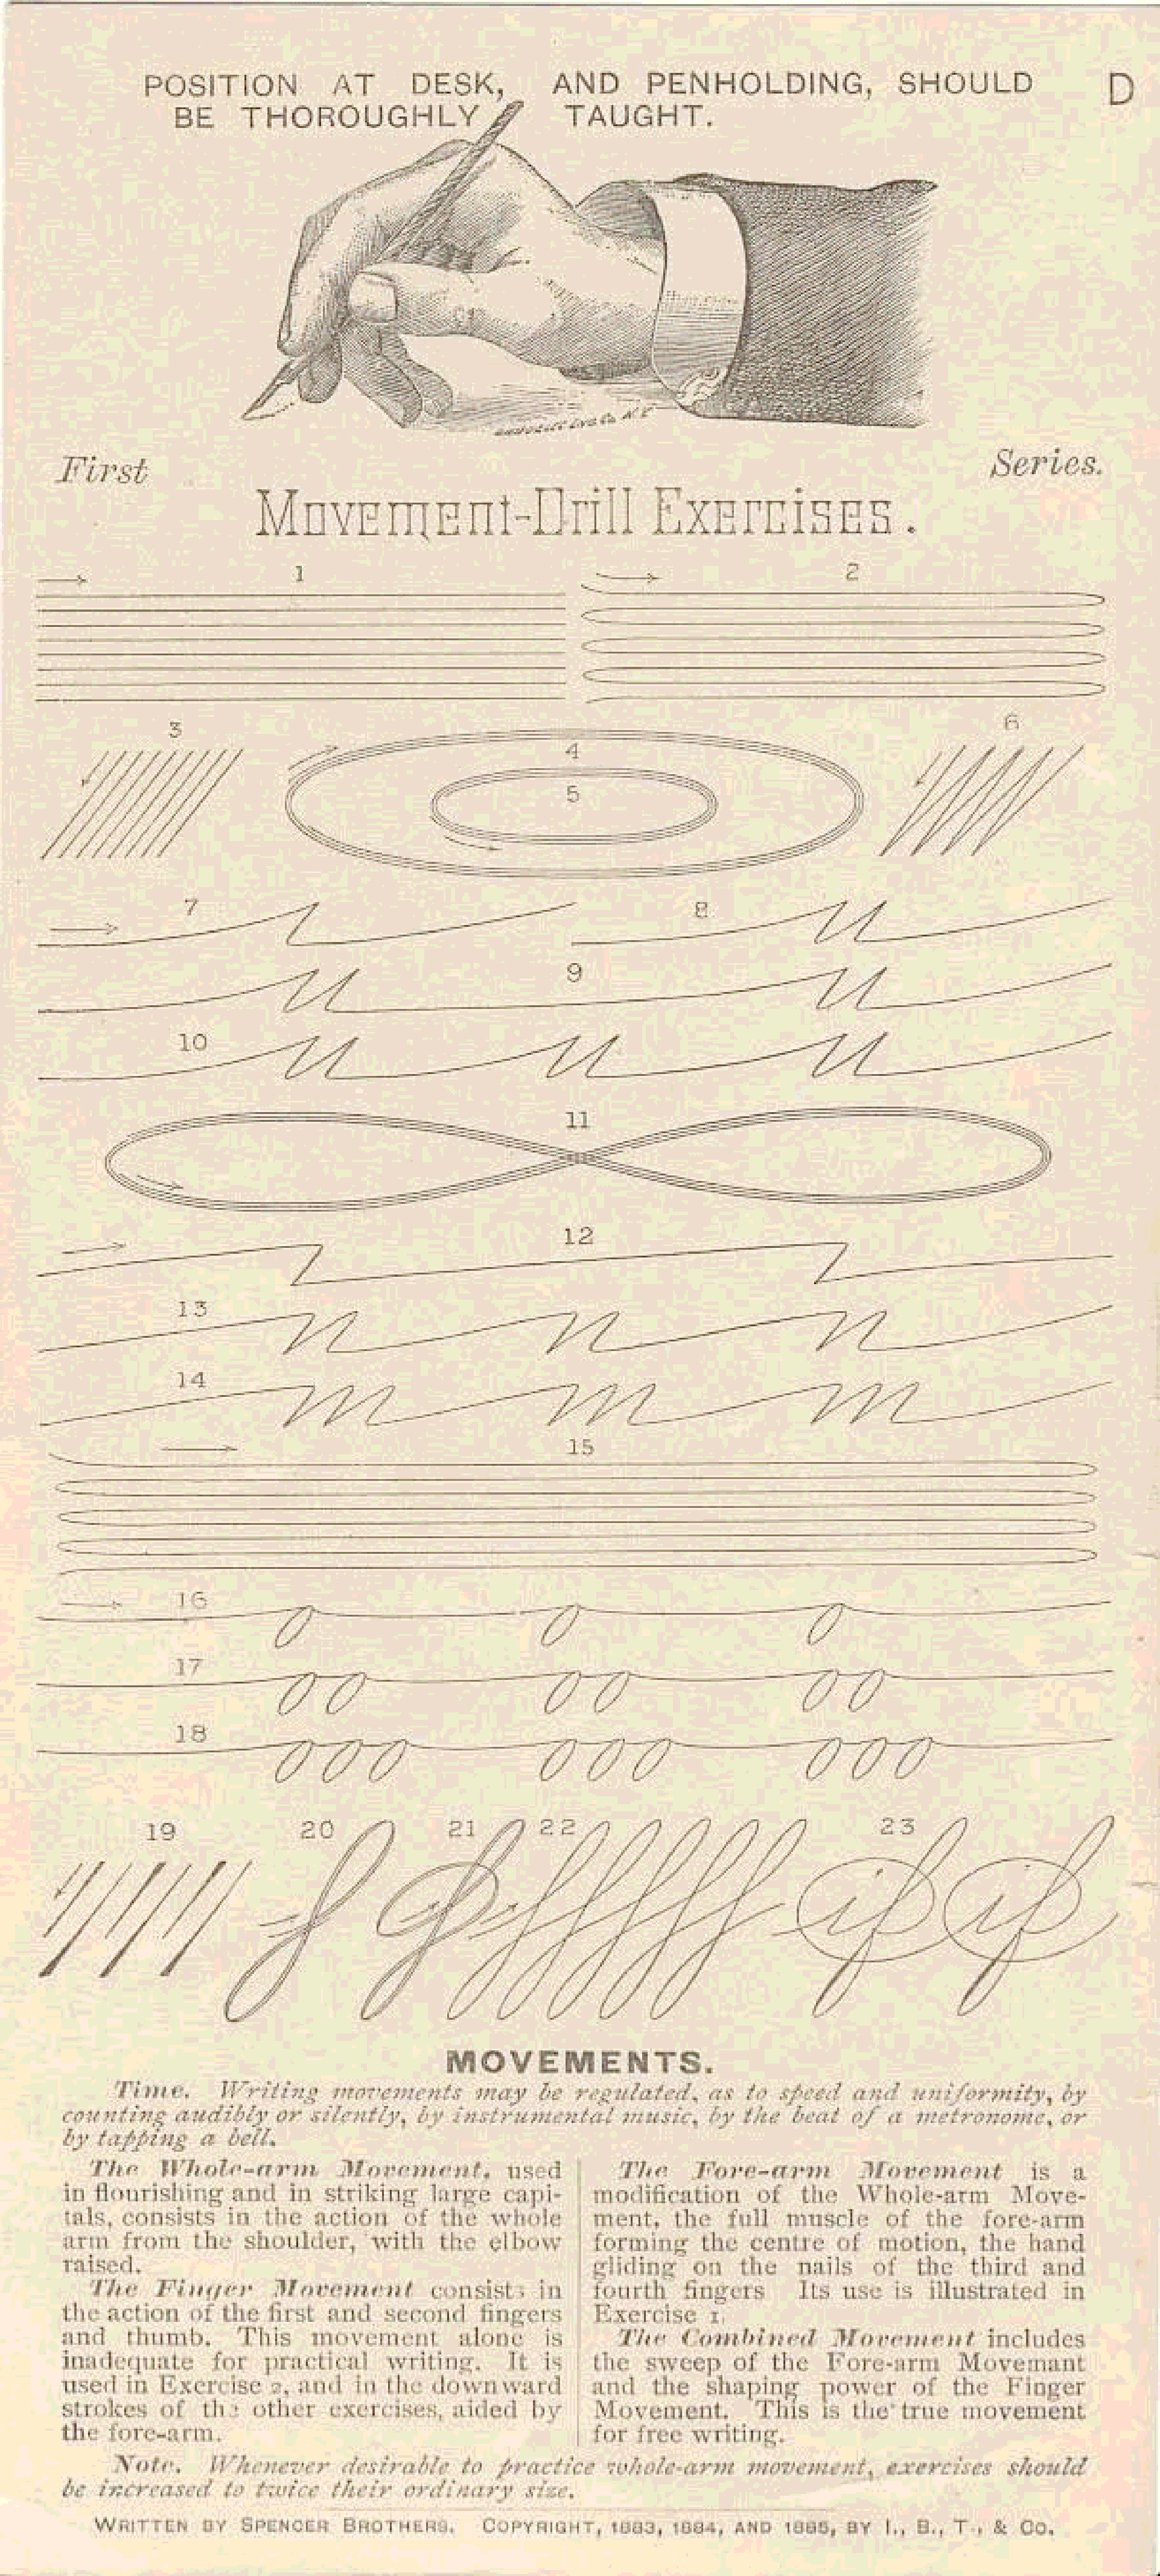 POSITION AT DESK, AND PENHOLDING, SHOULD D
BE THOROUGHLY TAUGHT.
First Series.
Movement-Drill Exercises.
1 2
3 4 6
5
7 8
9
10
11
12
13
14
15
16
17
18
19 20 21 22 23
MOVEMENTS.
Time. Writing movements may be regulated, as to speed and uniformity, by
counting audibly or silently, by instrumental music, by the beat of a metronome, or
by tapping a bell.
The Whole-arm Movement, used
in flourishing and in striking large capi-
tals, consists in the action of the whole
arm from the shoulder, with the elbow
raised.
The Finger Movement consists in
the action of the first and second fingers
and thumb. This movement alone is
inadequate for practical writing. It is
used in Exercise 2, and in the downward
strokes of the other exercises, aided by
the fore-arm.
The Fore-arm Movement is a
modification of the Whole-arm Move-
ment, the full muscle of the fore-arm
forming the centre of motion, the hand
gliding on the nails of the third and
fourth fingers Its use is illustrated in
Exercise 1.
The Combined Movement includes
the sweep of the Fore-arm Movemant
and the shaping power of the Finger
Movement. This is the true movement
for free writing.
Note. Whenever desirable to practice whole-arm movement, exercises should
be increased to twice their ordinary size.
WRITTEN BY SPENCER BROTHERS. COPYRIGHT, 1883, 1884, AND 1885, BY I., B., T., & CO.